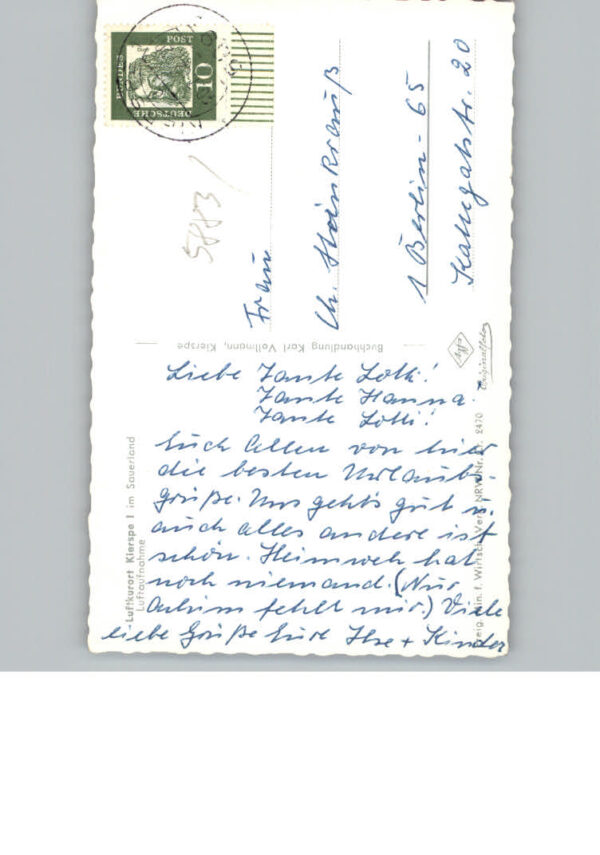 DEUTSCHE
BUNDES
POST
10
5883
Frau
Ch. Steinkrauß
1 Berlin-65
Kattegatstr. 20
Buchhandlung Karl Vollmann, Kierspe
Agfa
Originalfoto
Liebe Tante Lotti!
Tante Hanna
Tante Lotti!
Euch Allen von hier
die besten Urlaubs-
grüße. Uns geht's gut u.
auch alles andere ist
schön. Heimweh hat
noch niemand. (Nur
Achim fehlt mir.) Viele
liebe Grüße Eure Ilse + Kinder
Luftkurort Kierspe I im Sauerland
Luftaufnahme
Min. f. Wirtsch. Verk. NRW Nr. 2470